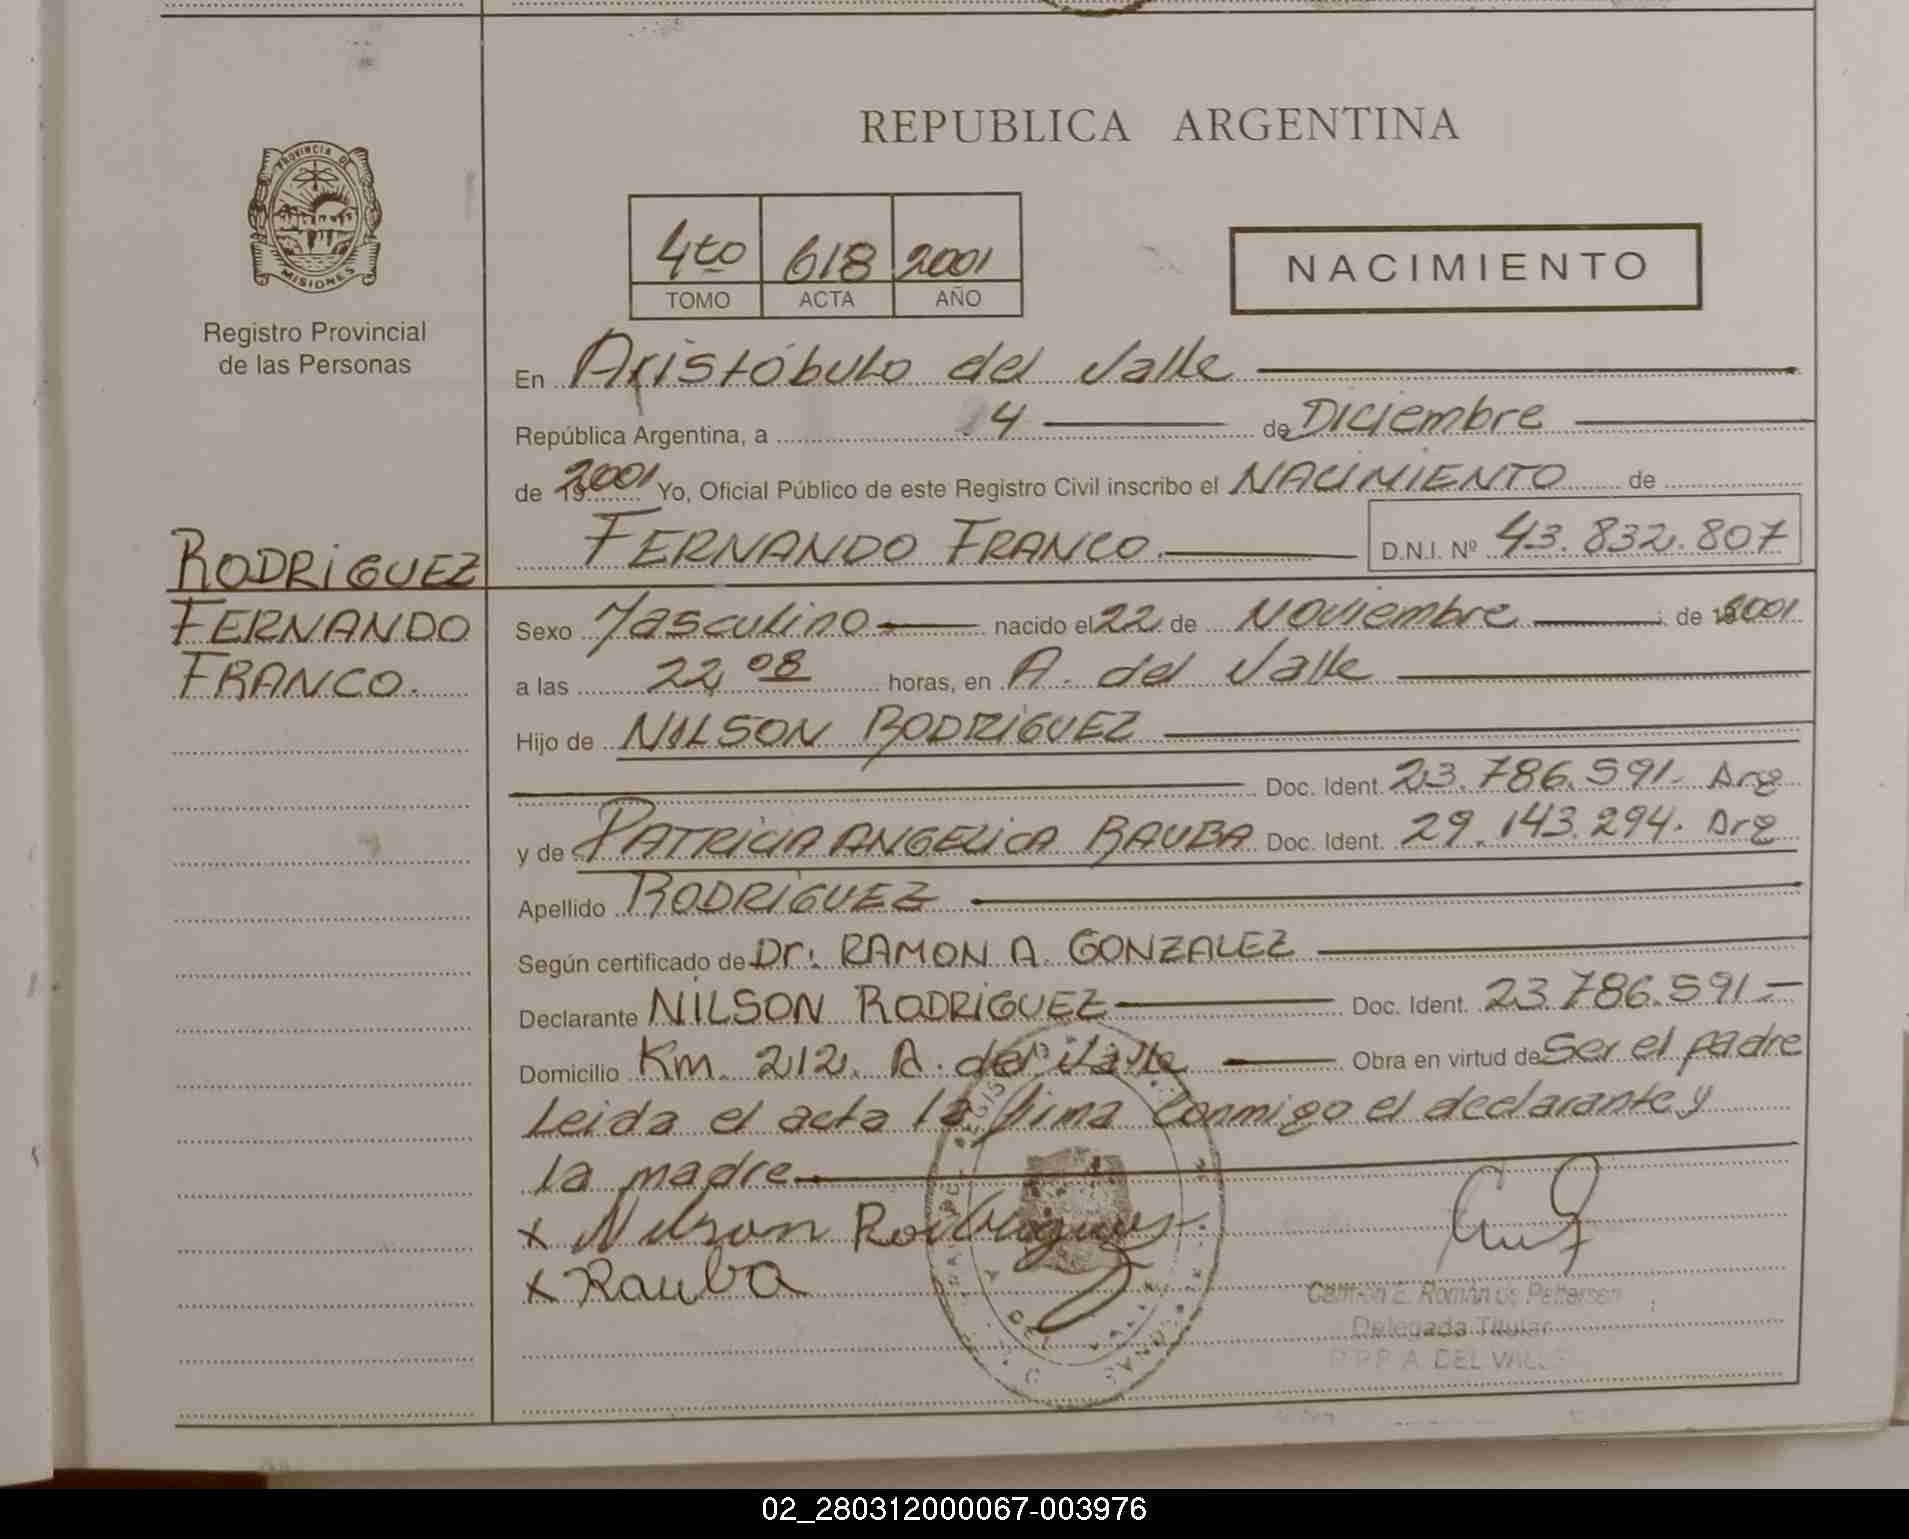 REPUBLICA ARGENTINA
PROVINCIA DE
MISIONES
Registro Provincial
de las Personas
4to 618 2001
TOMO ACTA AÑO
NACIMIENTO
En Aristóbulo del Valle
República Argentina, a 4 de Diciembre
de 2001 Yo, Oficial Público de este Registro Civil inscribo el NACIMIENTO de
FERNANDO FRANCO. D.N.I. Nº 43.832.807
RODRIGUEZ
FERNANDO
FRANCO.
Sexo Masculino nacido el 22 de Noviembre de 2001
a las 22 08 horas, en A. del Valle
Hijo de NILSON RODRIGUEZ
Doc. Ident. 23.786.591- Arg
y de PATRICIA ANGELICA RAUBA Doc. Ident. 29.143.294. Arg
Apellido RODRIGUEZ
Según certificado de Dr. RAMON A. GONZALEZ
Declarante NILSON RODRIGUEZ Doc. Ident. 23.786.591-
Domicilio Km. 212. A. del Valle Obra en virtud de Ser el padre
Leida el acta la firma conmigo el declarante y
la madre
x Nilson Rodriguez.
x Rauba
Delegada Titular
A. DEL VALLE
02_280312000067-003976